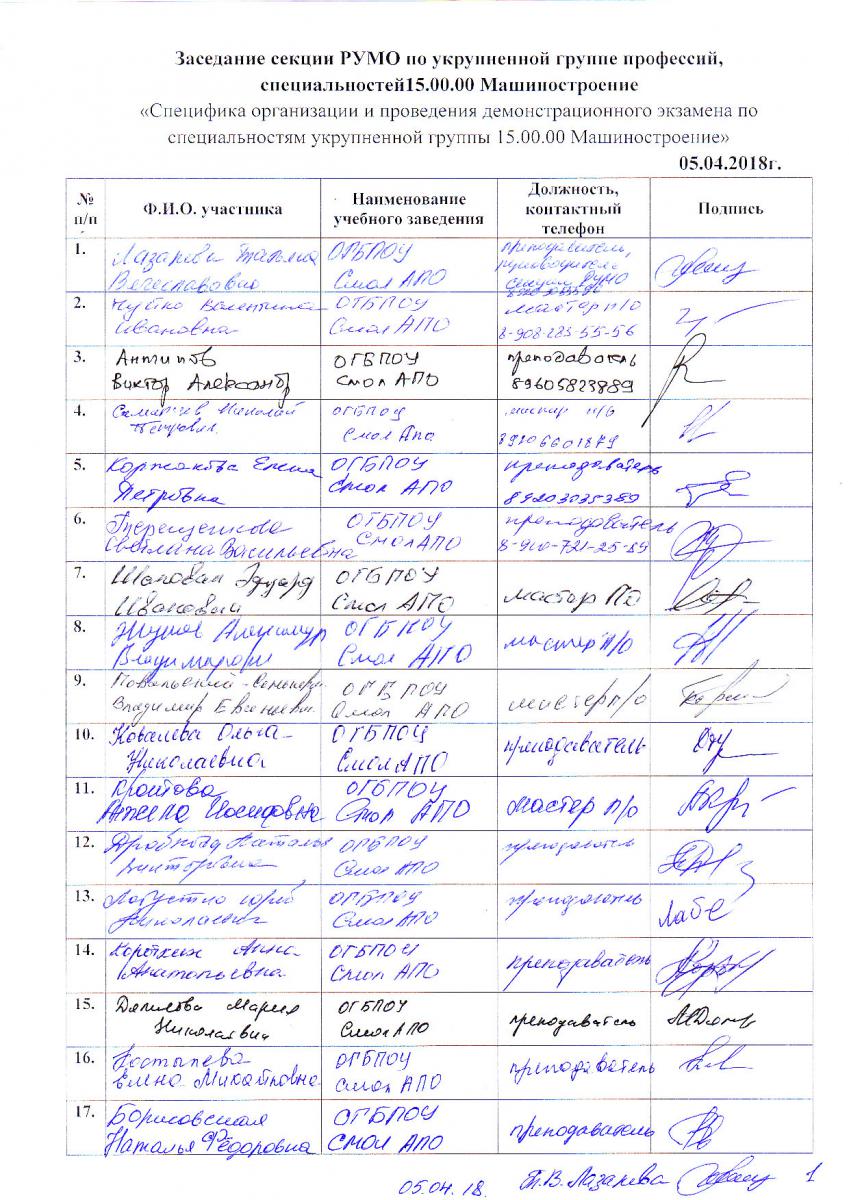 Заседание секции РУМО по укрупненной группе профессий,
специальностей15.00.00 Машиностроение
«Специфика организации и проведения демонстрационного экзамена по
специальностям укрупненной группы 15.00.00 Машиностроение»
05.04.2018г.
№ п/п Ф.И.О. участника Наименование учебного заведения Должность, контактный телефон Подпись
1. Лазарева Татьяна ОГБПОУ преподаватель,
Вячеславовна Смол АПО секции РУМО
2. Чуйко Валентина ОГБПОУ мастер п/о
Ивановна Смол АПО 8-908-283-55-56
3. Антипов ОГБПОУ преподаватель
Виктор Александр Смол АПО 89605823889
4. Николай ОГБПОУ мастер п/о
Петрович Смол Апо 89206601879
5. Елена ОГБПОУ преподаватель
Петровна Смол АПО 89203035389
6. Терещенкова ОГБПОУ преподаватель
Светлана Васильевна Смол АПО 8-910-721-25-89
7. Эдуард ОГБПОУ
Иванович Смол АПО мастер ПО
8. Александр ОГБПОУ
Смол АПО мастер п/о
9. ОГБПОУ
Владимир Евгеньевич Смол АПО мастер п/о
10. Ковалева Ольга ОГБПОУ
Николаевна Смол АПО преподаватель
11. ОГБПОУ
Анжела Иосифовна Смол АПО мастер п/о
12. Наталья ОГБПОУ преподаватель
Викторовна Смол АПО
13. Юрий ОГБПОУ преподаватель
Николаевич Смол АПО
14. Коротких Анна ОГБПОУ
Анатольевна Смол АПО преподаватель
15. Мария ОГБПОУ
Николаевна Смол АПО преподаватель
16. Костылева ОГБПОУ
Елена Михайловна Смол АПО преподаватель
17. Борисовская ОГБПОУ
Наталья Фёдоровна Смол АПО преподаватель
05.04.18. Т.В. Лазарева 1